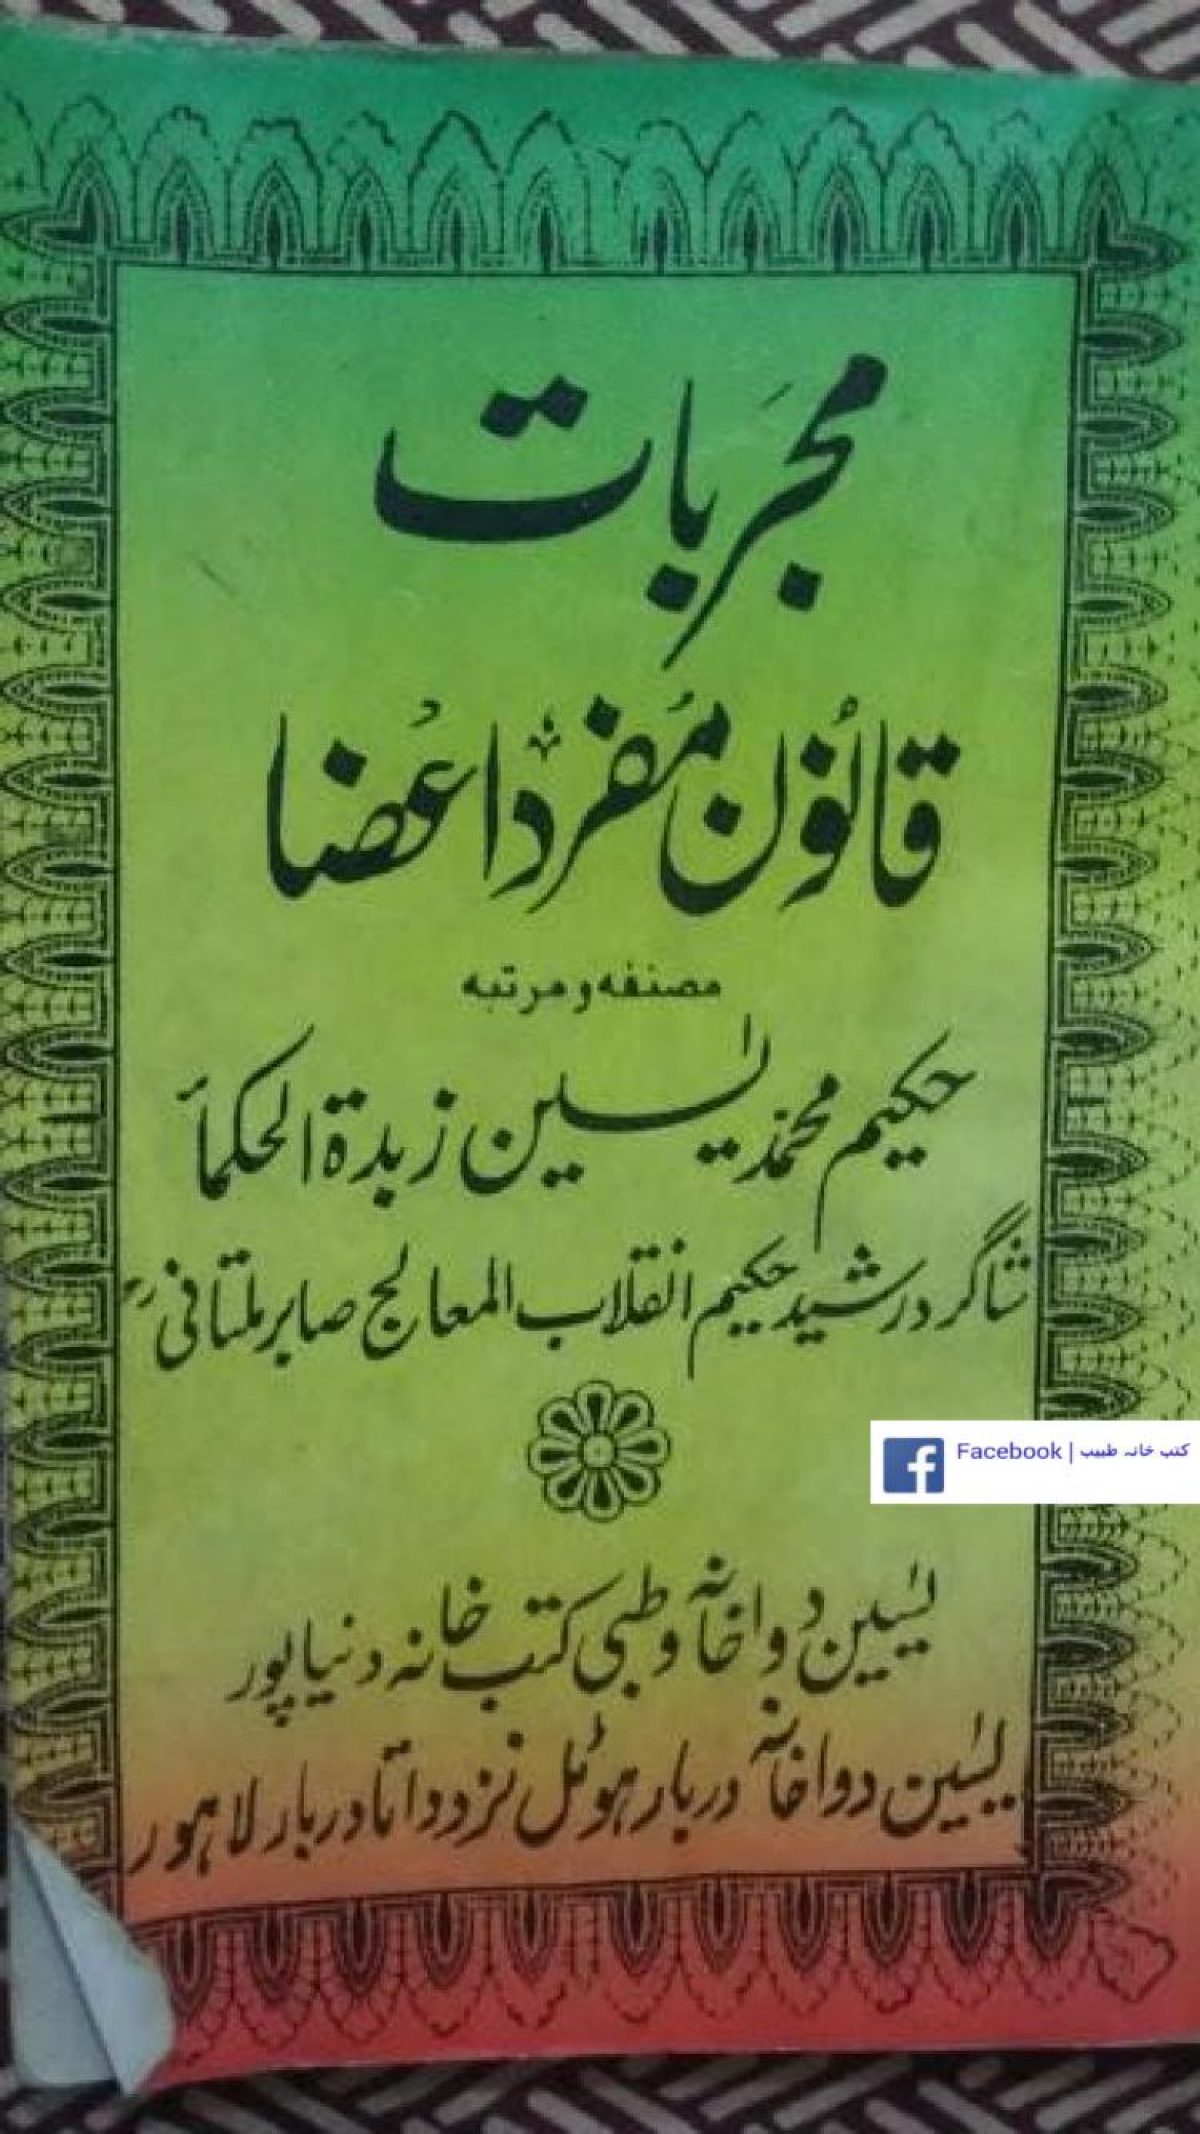 مجربات
قانون مفرد اعضا
مصنفه و مرتبه
حکیم محمد یٰسین زبدۃ الحکمأ
شاگرد رشید حکیم انقلاب المعالج صابر ملتانیؒ
Facebook | کتب خانہ طبیب
یٰسین دواخانہ و طبی کتب خانہ دنیاپور
یٰسین دواخانہ دربار ہوٹل نزد داتا دربار لاہور